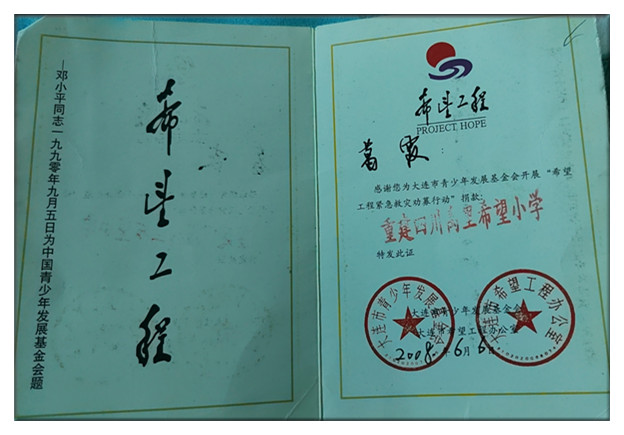 希望工程
—邓小平同志一九九〇年九月五日为中国青少年发展基金会题
希望工程
PROJECT HOPE
葛霞:
感谢您为大连市青少年发展基金会开展“希望
工程紧急救灾劝募行动”捐款:
重建四川 希望小学
特发此证
大连市青少年发展基金会
大连市希望工程办公室
2008年6月6日
大连市青少年发展基金会
大连市希望工程办公室